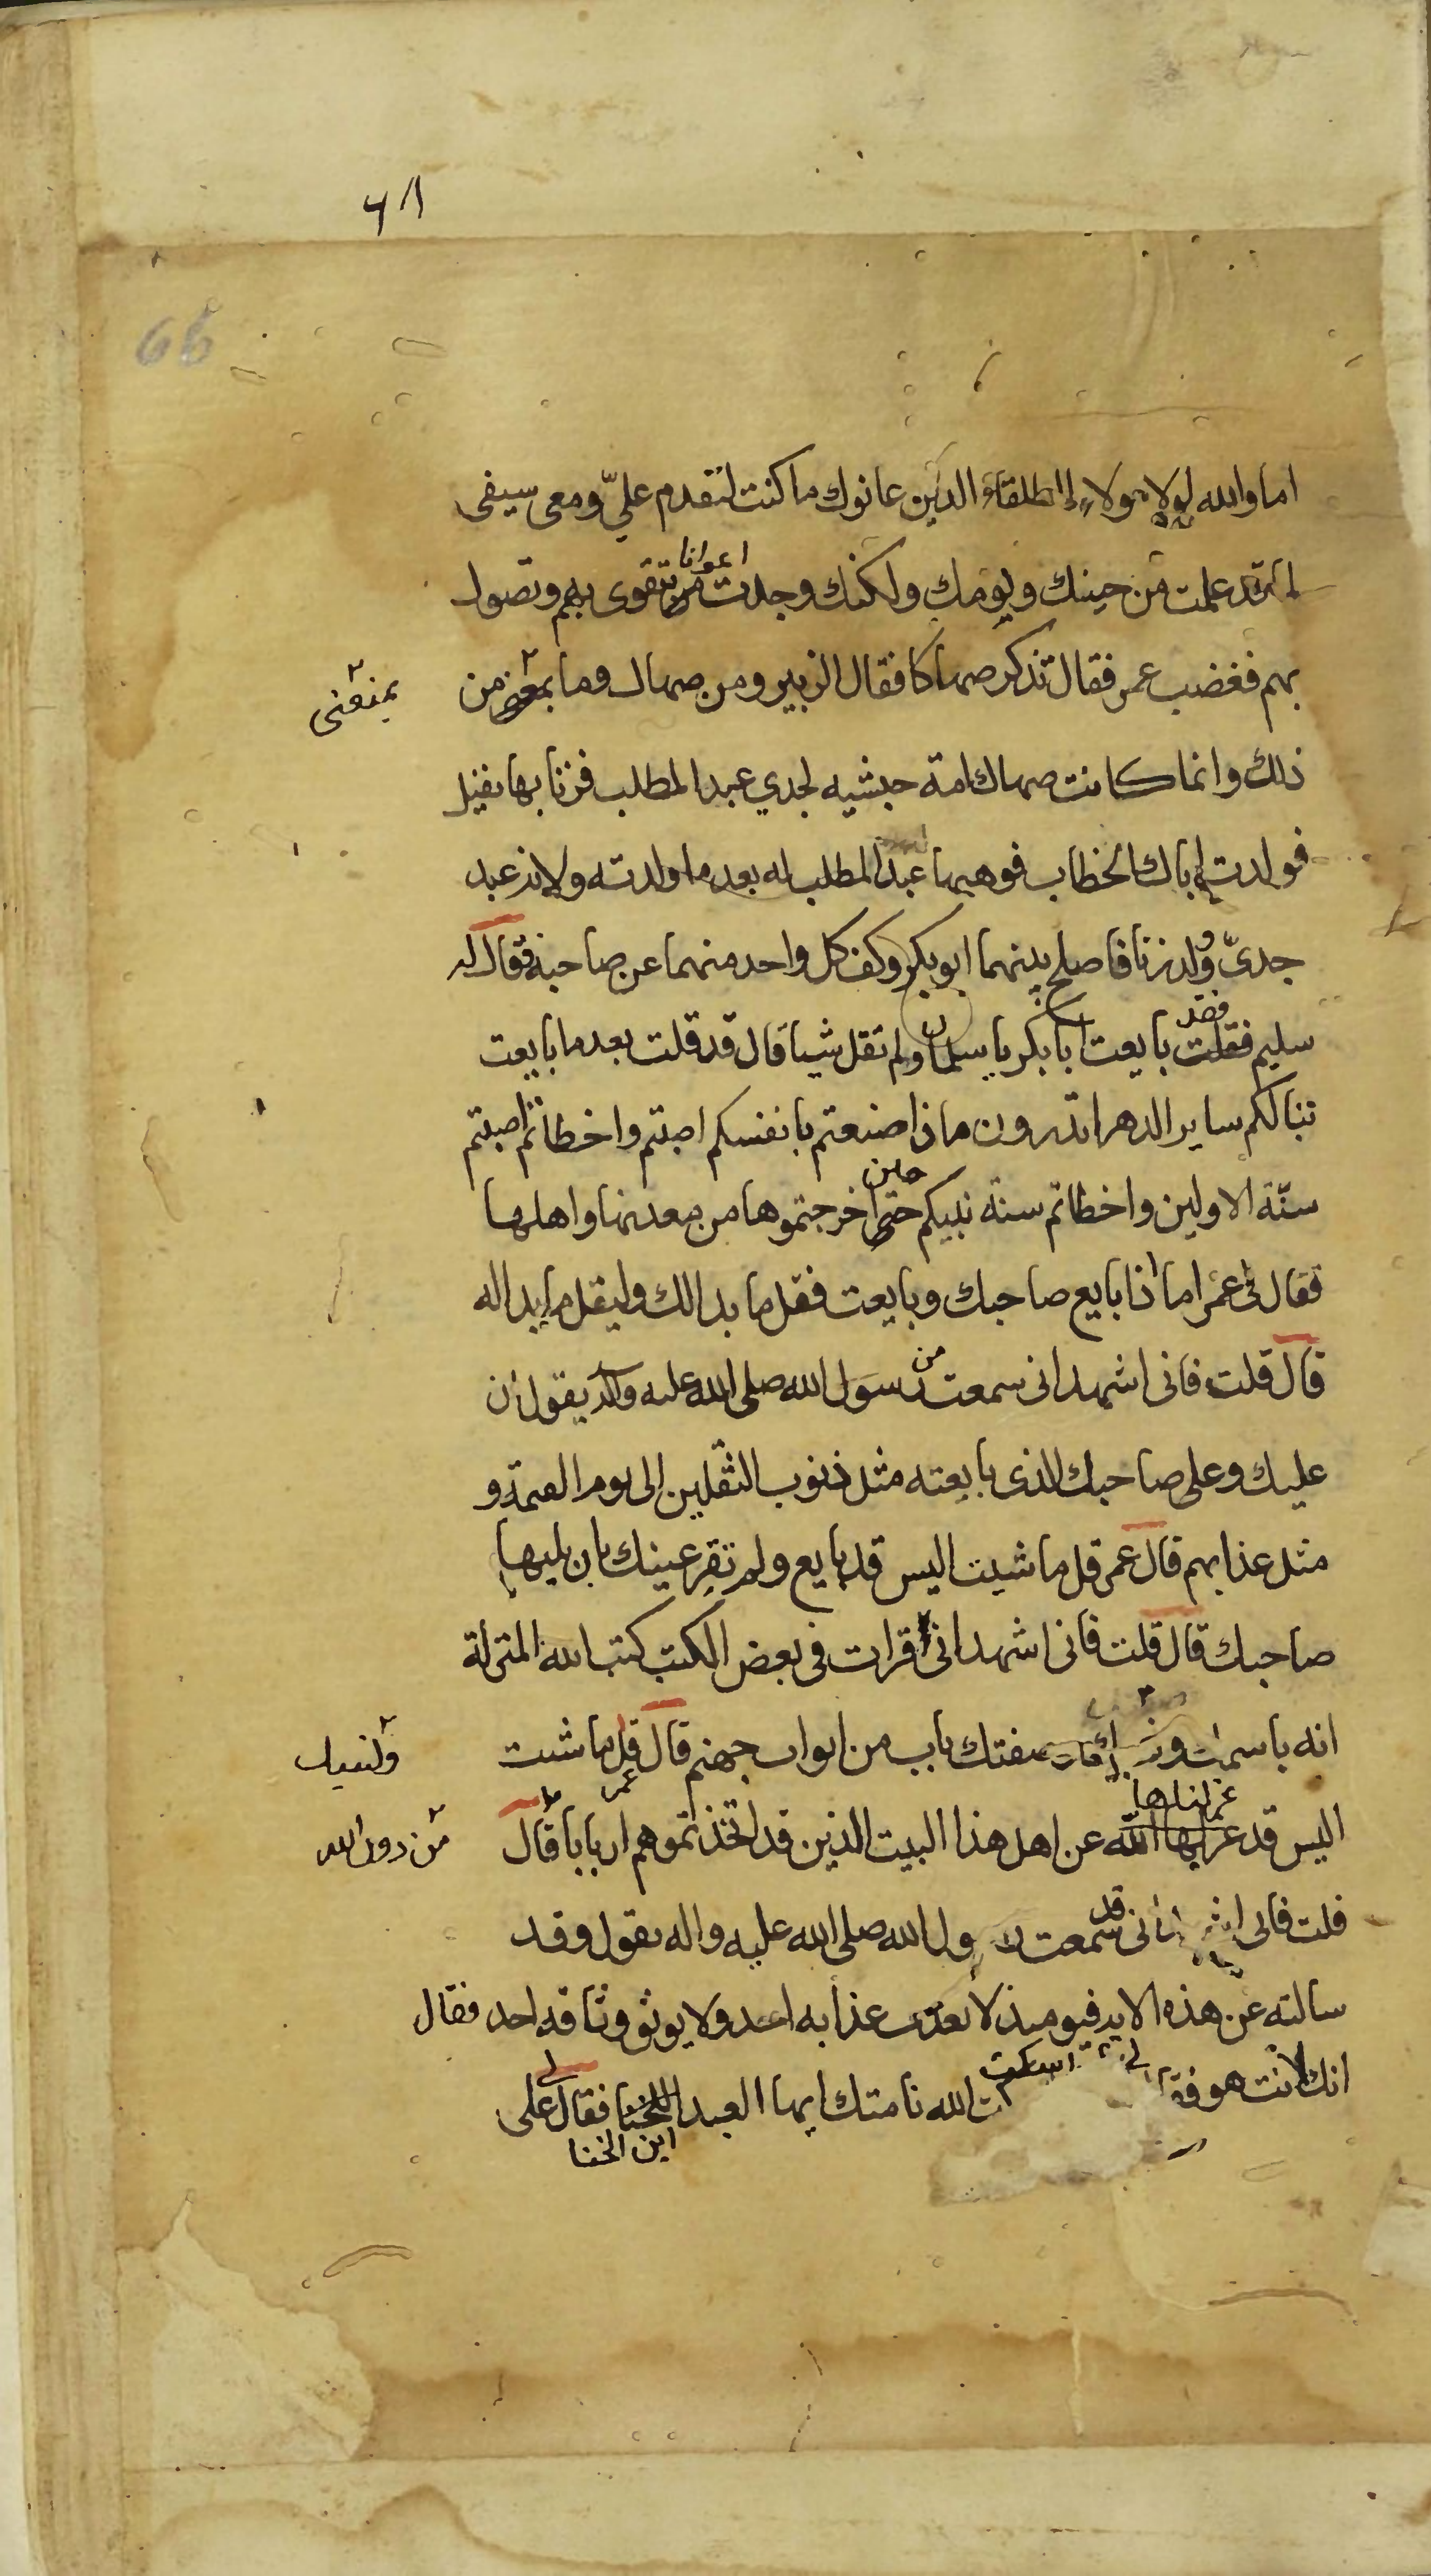 66
اما والله لولا هولاء الطلقاء الذين عانوك ما كنت لتقدم عليّ ومعى سيفى
لما قد علمت من حينك ويومك ولكنك وجدت من تقوى بهم وتصول
اعوانا
بهم فغضب عمر فقال تذكر صهاكا فقال الزبير ومن صهاك وما يمنعنى من
يمنعنى
ذلك وانما كانت صهاك امة حبشيه لجدي عبد المطلب فزنا بها نفيل
فولدت اباك الخطاب فوهبها عبد المطلب له بعد ما ولدته ولانه عبد
جدىّ ولد زنا فاصلح بينهما ابو بكر وكف كل واحد منهما عن صاحبه فقال
سليم فقلت بايعت ابا بكر يا سلمان ولم تقل شيا قال قد قلت بعد ما بايعت
فقد
تبا لكم ساير الدهر اتدرون ماذا صنعتم بانفسكم اصبتم واخطاتم اصبتم
سنّة الاولين واخطاتم سنة نبيكم حتى اخرجتموها من معدنها واهلها
حين
فقال لى عمر اما اذا بايع صاحبك وبايعت فقل ما بدا لك وليقل ما بدا له
قال قلت فانى اشهد انى سمعت رسول الله صلى الله عليه واله يقول ان
من
عليك وعلى صاحبك الذى بايعته مثل ذنوب الثقلين الى يوم القيمة و
مثل عذابهم قال عمر قل ما شيت اليس قد بايع ولم تقر عينك بان يليها
صاحبك قال قلت فانى اشهد انى قرات فى بعض الكتب كتب الله المنزلة
انه باسمك وصفتك باب من ابواب جهنم قال قل ما شيت
عمر
اليس قد عزلها الله عن اهل هذا البيت الذين قد اتخذتموهم اربابا قال
عزلناها
من دون الله
قلت فانى اشهد انى سمعت رسول الله صلى الله عليه واله يقول وقد
قد
سالته عن هذه الايه فيوميذ لا يعذب عذابه احد ولا يوثق وثاقه احد فقال
انك انت هو الله نامتك ايها العبد اللخنا فقال على
لى اسكت
ابن اللخنا